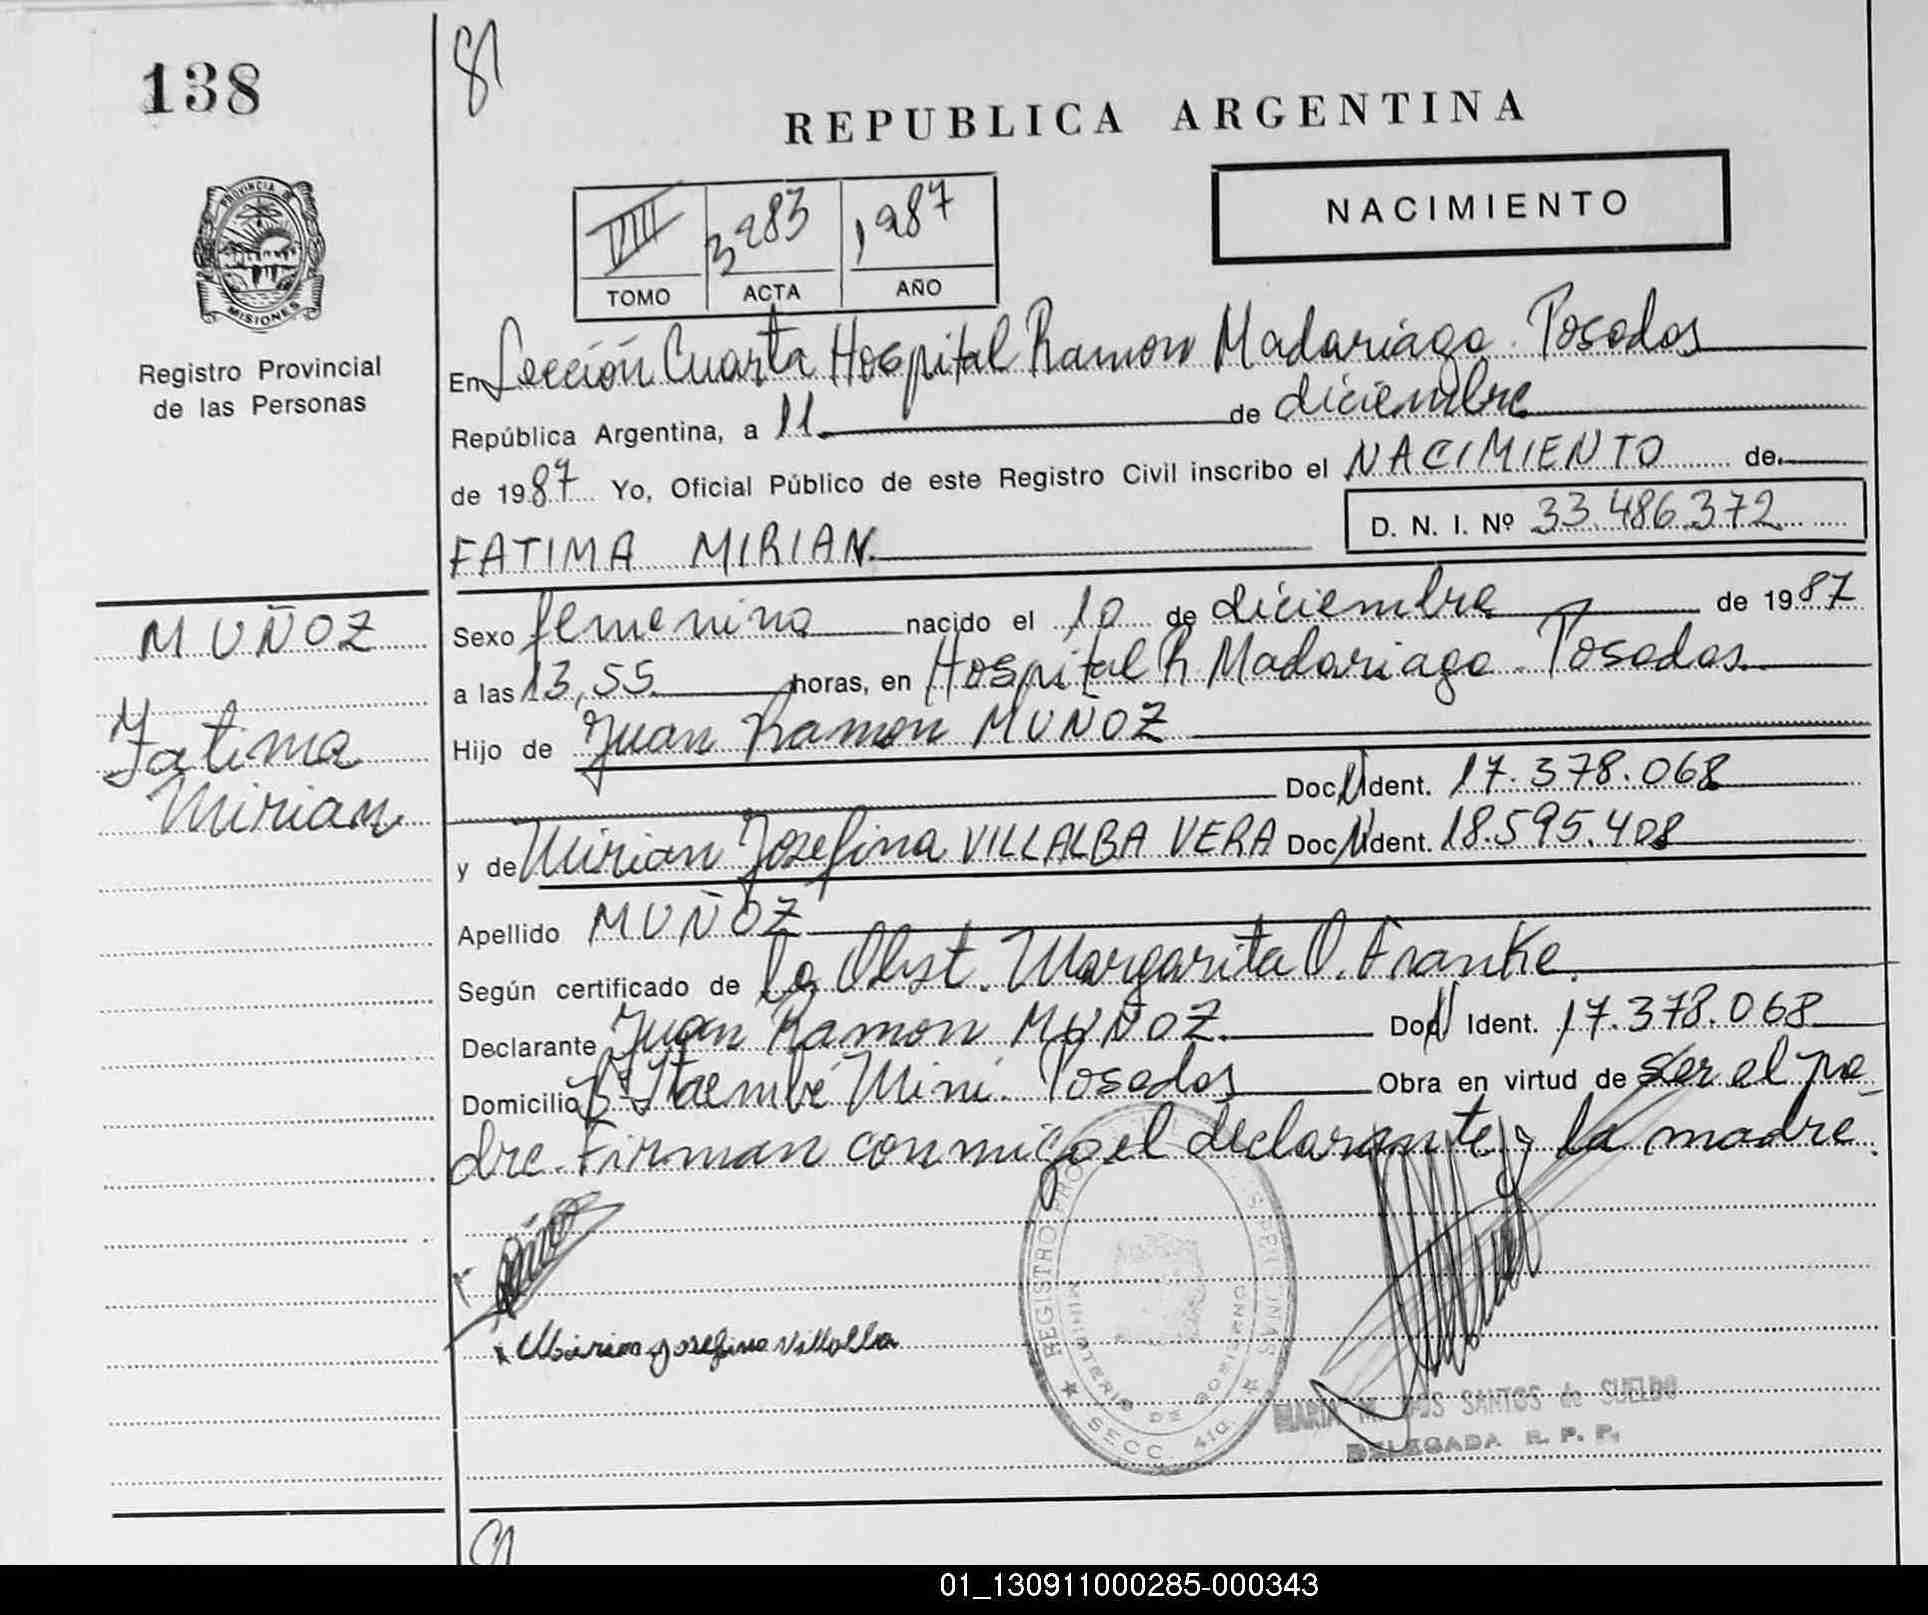 138
81
REPUBLICA ARGENTINA
NACIMIENTO
VIII 3283 1987
TOMO ACTA AÑO
PROVINCIA DE
MISIONES
Registro Provincial
de las Personas
En Sección Cuarta Hospital Ramon Madariaga. Posadas
República Argentina, a 11 de diciembre
de 1987 Yo, Oficial Público de este Registro Civil inscribo el NACIMIENTO de
D. N. I. Nº 33.486.372
FATIMA MIRIAN
MUÑOZ
Fatima
Mirian
Sexo femenino nacido el 10 de diciembre de 1987
a las 13,55 horas, en Hospital R Madariaga - Posadas
Hijo de Juan Ramon MUÑOZ
Doc. Ident. 17.378.068
y de Mirian Josefina VILLALBA VERA Doc. Ident. 18.595.408
Apellido MUÑOZ
Según certificado de la Obst. Margarita O. Franke.
Declarante Juan Ramon MUÑOZ. Doc. Ident. 17.378.068
Domicilio Bº Itaembé Mini. Posadas Obra en virtud de ser el pa-
dre. Firman conmigo el declarante y la madre.
Mirian Josefina Villalba
REGISTRO PROVINCIAL DE LAS PERSONAS
MINISTERIO DE GOBIERNO
SECC. 4ta.
MARIA M. DOS SANTOS de SUELDO
DELEGADA R. P. P.
01_130911000285-000343